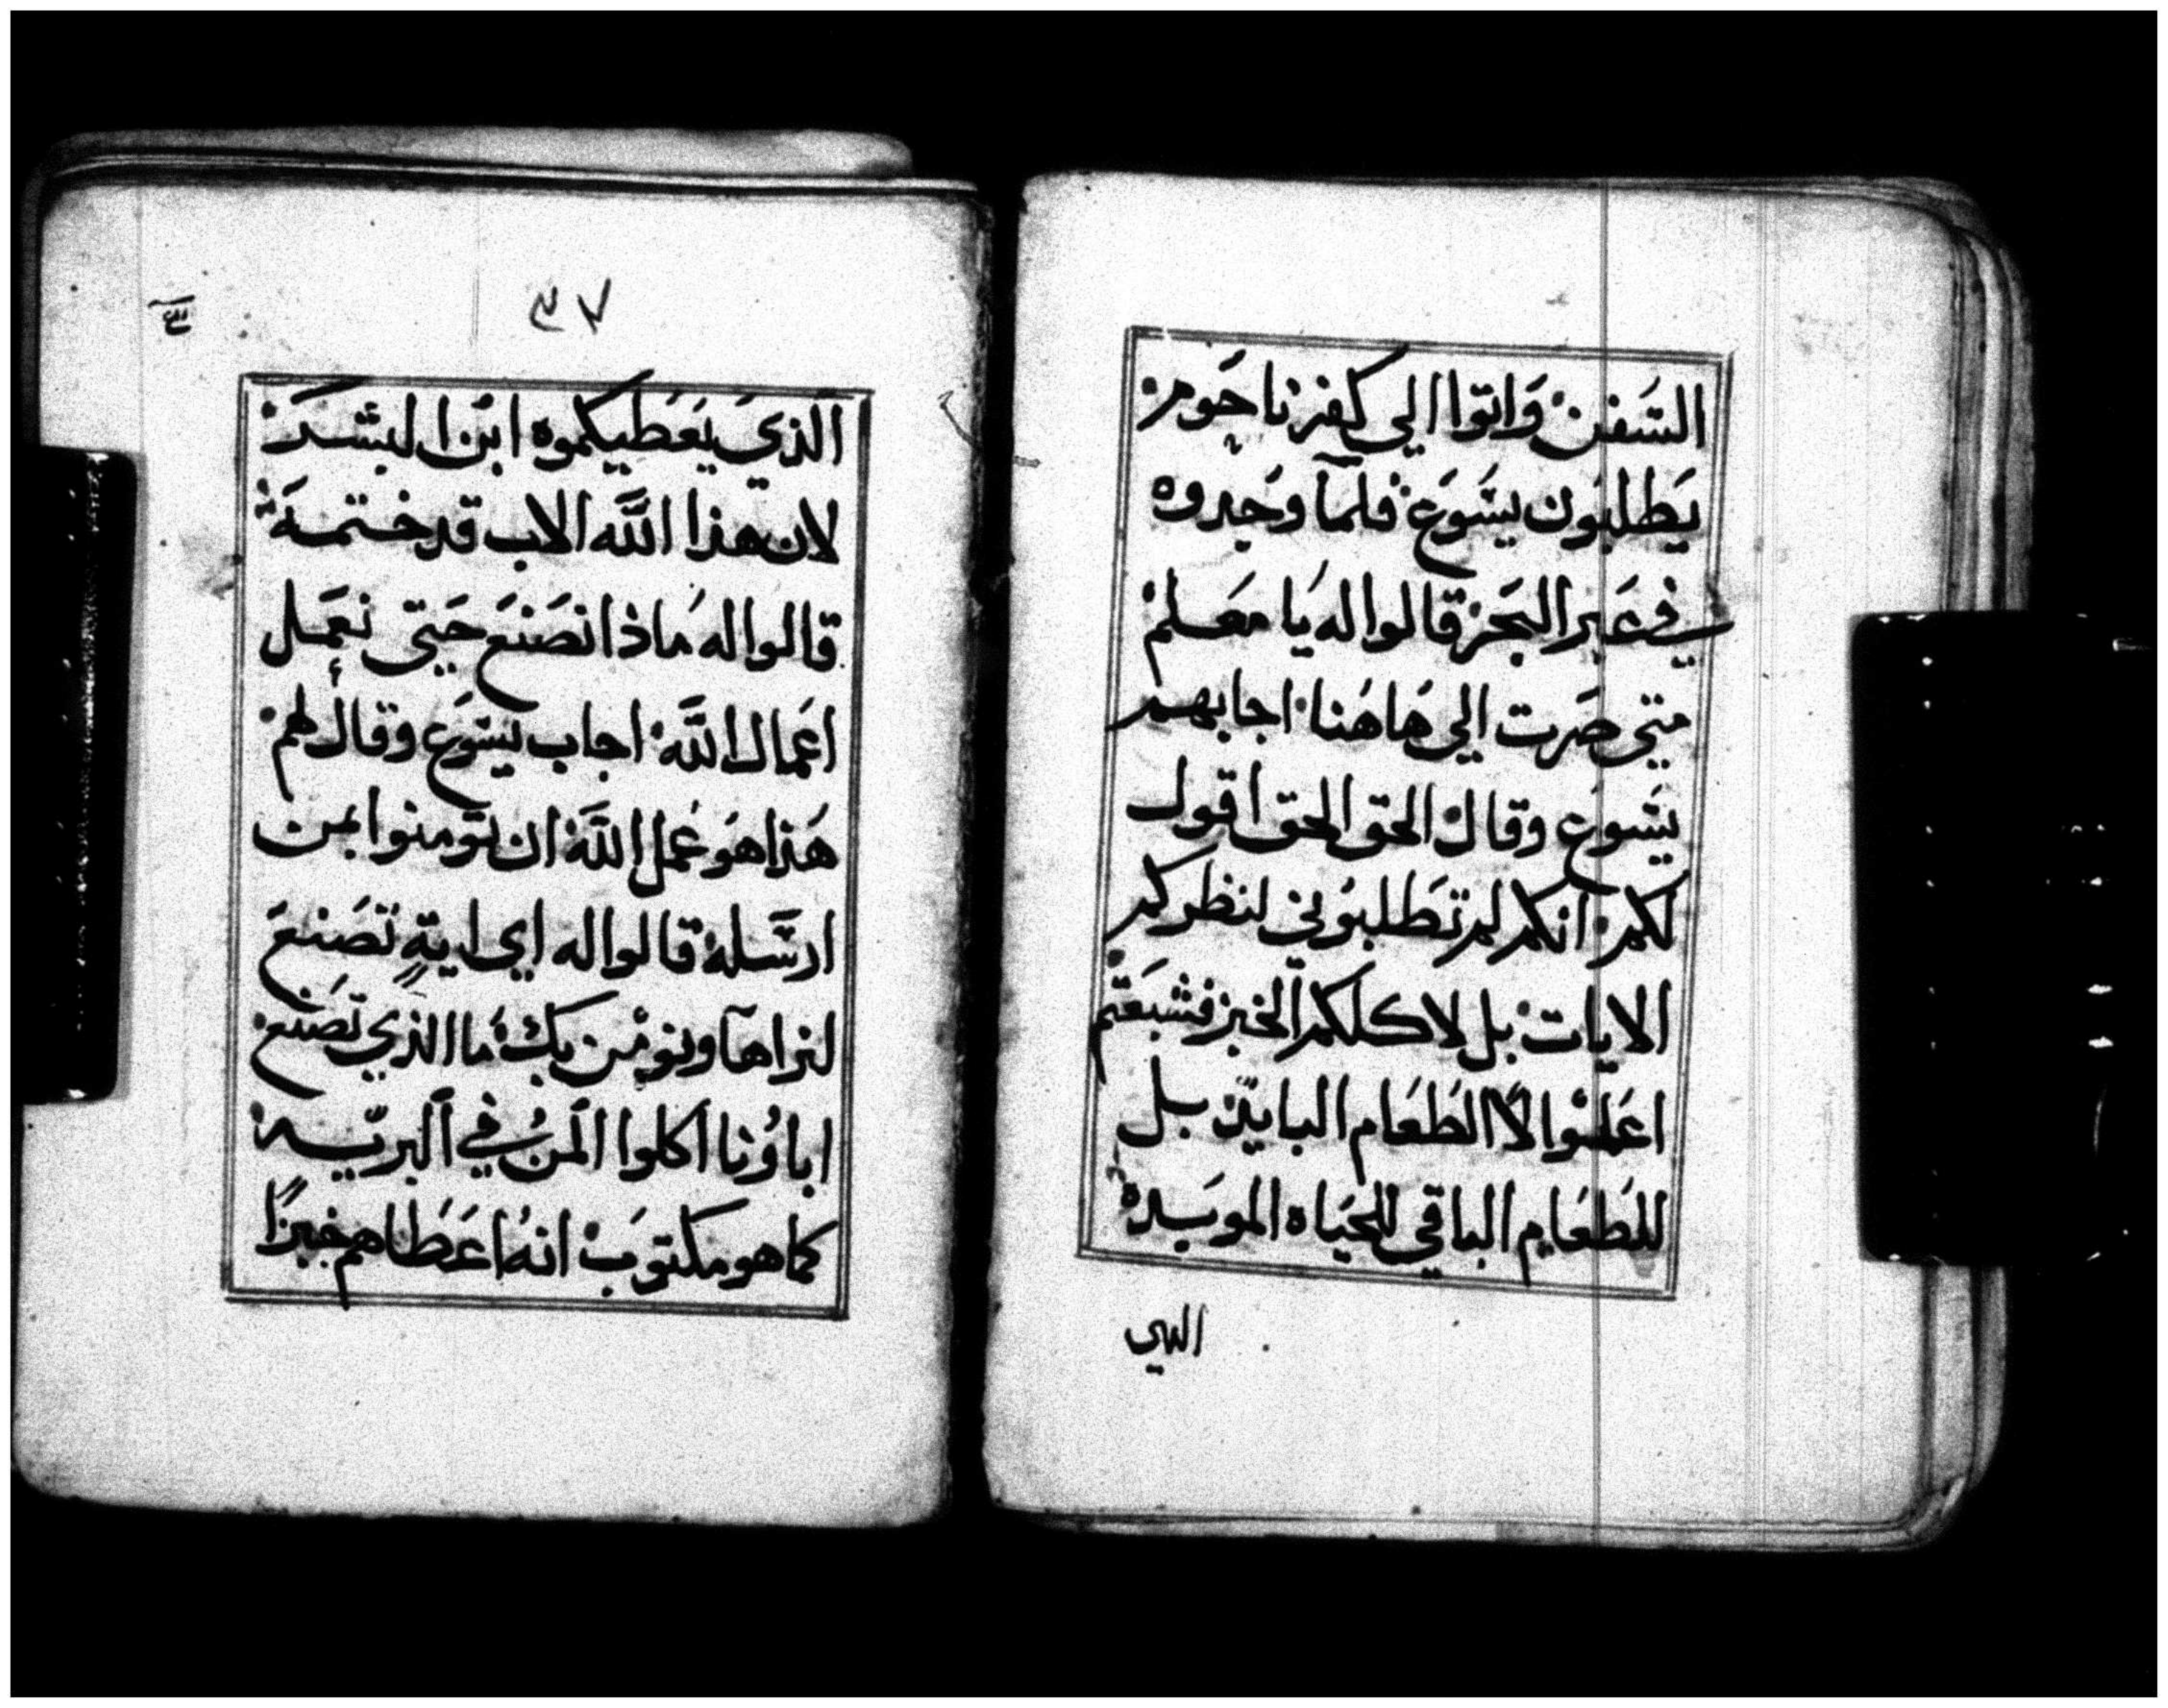 السَفن وَاتوا الي كفرناحَوم
يَطلبون يسَوَع فلمآ وجَدوه
في عَبر البَحر قالوا له يَا مَعَلم
متي صَرت الي هَاهَنا اجابهم
يسَوع وقال الحق الحق اقول
لكم انكم لم تَطلبوني لنظركم
الايات بل لاكلكم الخبز فشبعَتم
اعَملوا لا الطَعَام البايد بل
للطَعَام الباقي للحَيَاه الموبَده
الدي
٣٧
الذيَ يَعَطيكموه ابن البشَر
لان هذا اللَّه الاب قد ختمهَ
قالوا له مَاذا نصَنَع حَتي نعَمَل
اعَمال اللَّه اجاب يسَوَع وقال لهم
هَذا هوَ عَمل اللَّه ان تَومنوا بمن
ارسَله قالوا له اي ايةٍ تَصَنعَ
لنراهآ ونومن بك مَا الذي تَصَنع
اباؤنا اكلوا المنُ في البريّه
كما هو مكتوَب انهُ اعَطَاهم خبزًا